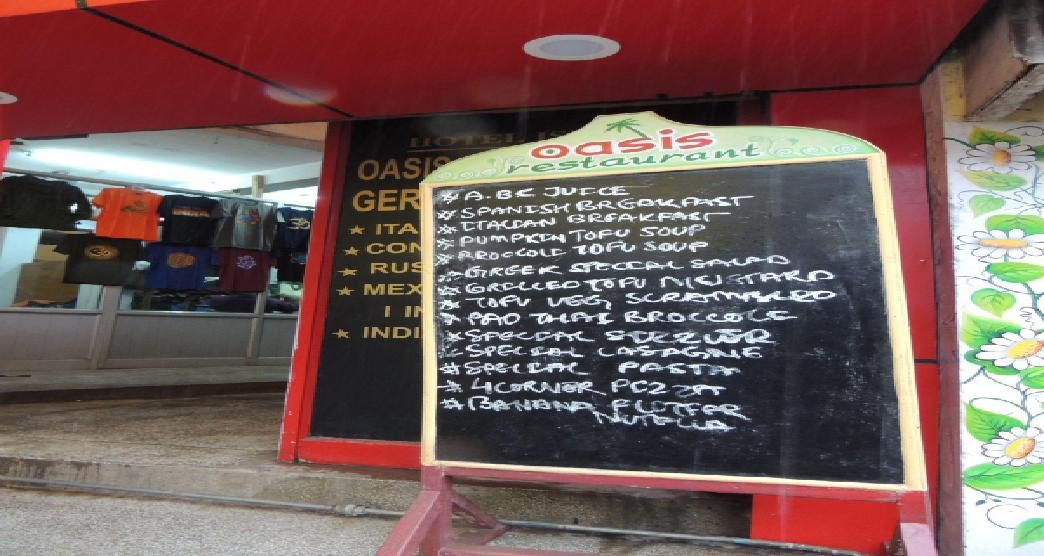 HOTEL IS
OASIS
GER
★ ITA
★ CON
★ RUS
★ MEX
I IN
★ INDI
oasis
restaurant
* A.BC JUICE
* SPANISH BREAKFAST
* ITALIAN BREAKFAST
* PUMPKIN TOFU SOUP
* BROCCOLI TOFU SOUP
* GREEK SPECIAL SALAD
* GRILLED TOFU MUSTARD
* TOFU VEG, SCRAMBLED
* PAD THAI BROCCOLE
* SPECIAL SIZZLER
* SPECIAL LASAGNE
* SPECIAL PASTA
* 4 CORNER PIZZA
* BANANA
NUTELLA